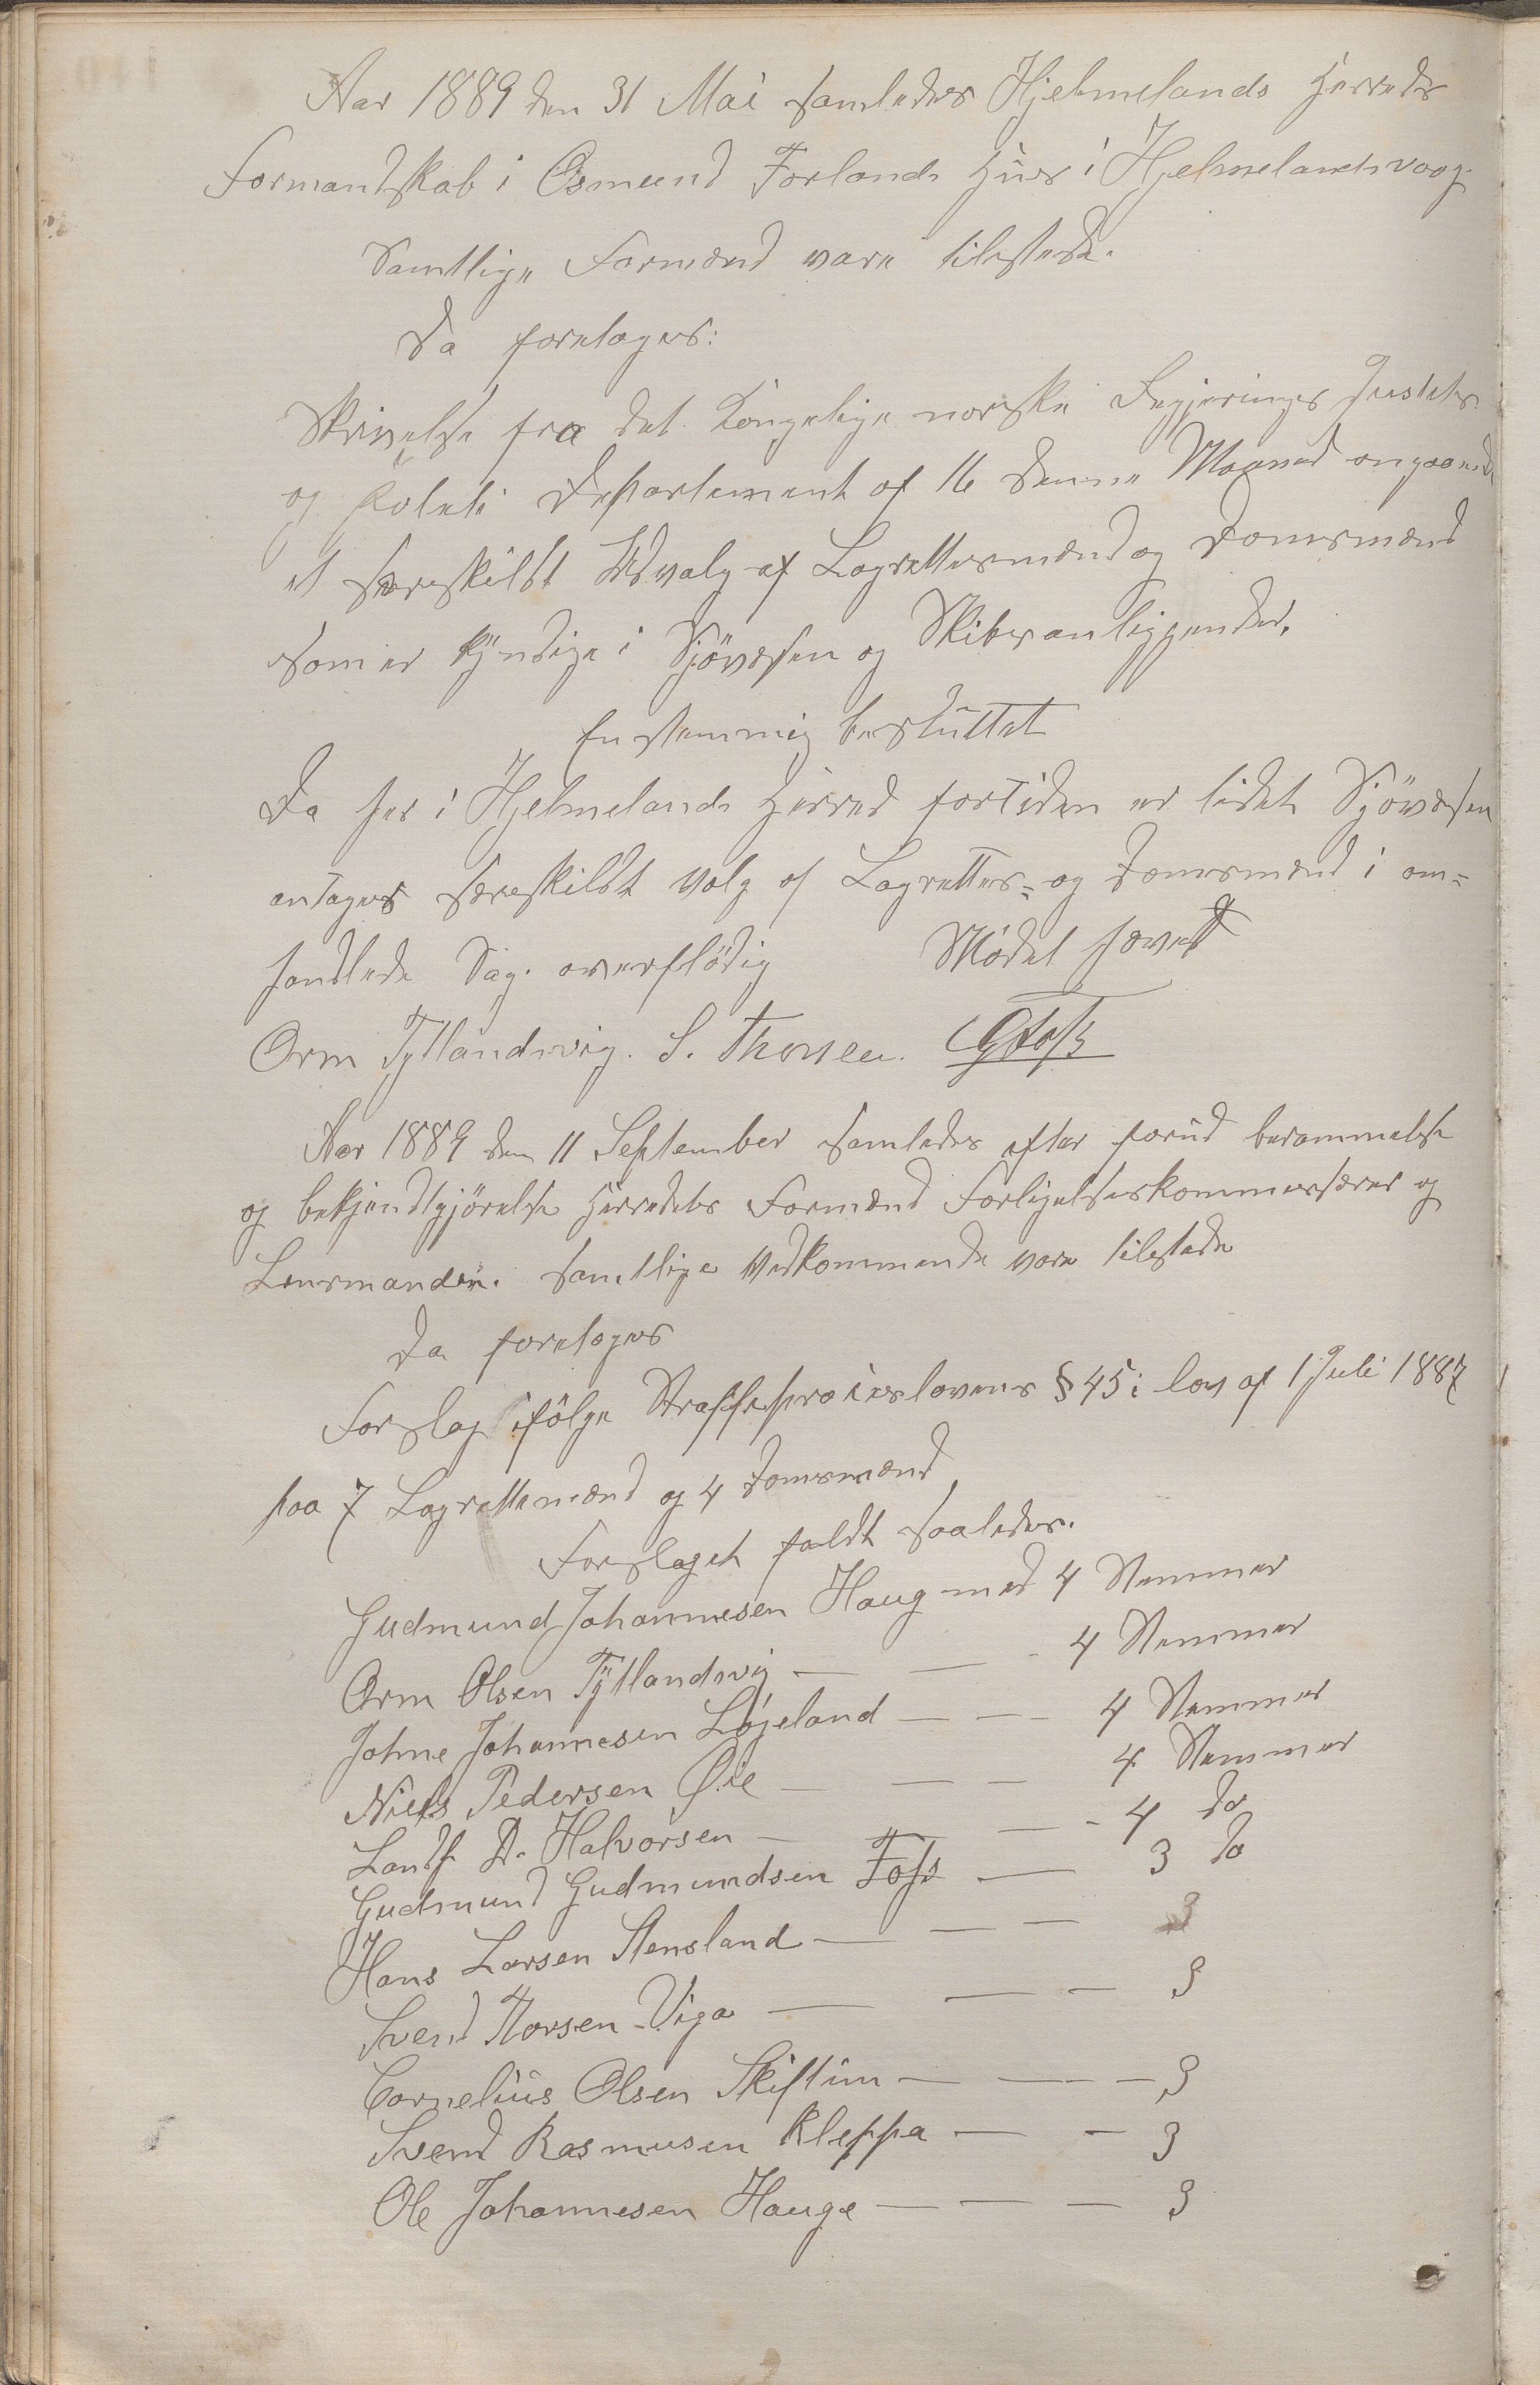 Aar 1889 den 31 Mai samledes Hjelmelands Herreds
Formandskab i Osmund Forlands Huus i Hjelmelandsvaag.
Samtlige Formænd vare tilstede.
Da foretoges:
Skrivelse fra det Kongelige norske Regjerings Justits.
og Politi Departement af 16 denne Maaned angaaende
et særskildt Udvalg af Lagrettesmænd og Domsmænd
som er kyndige i Sjövæsen og Skibsanliggender.
Enstemmig besluttet
Da her i Hjelmelands Herred fortiden er lidet Sjövæsen
antages særeskildt Valg af Lagrettes- og Domsmænd i om-
handlede Sag. overflödig Mödet hævet
Orm Tytlandsvig. S. Thorsen. G Foss
Aar 1889 den 11 September samledes efter forud berammelse
og bekjendtgjörelse Herredets Formænd Forligelseskommisærer og
Lensmanden. Samtlige Vedkommende vare tilstede
Da foretoges
Forslag ifölge Straffeproceslovens § 45 i lov af 1 Juli 1887
paa 7 Lagrettemænd og 4 Domsmænd
Forslaget faldt saaledes.
Gudmund Johannesen Haug med 4 Stemmer
Orm Olsen Tytlandsvig — — - 4 Stemmer
Johne Johannesen Løjeland — — — 4 Stemmer
Niels Pedersen Øie — — — 4 Stemmer
Landh. D. Halvorsen — — — - 4 do
Gudmund Gudmundsen Foss — 3 do
Hans Larsen Stensland — — — 3
Svend Thorsen Viga — — — 3
Cornelius Olsen Skiftun — — - — 3
Svend Rasmusen Kleppa — — 3
Ole Johannesen Hauge — — — 3